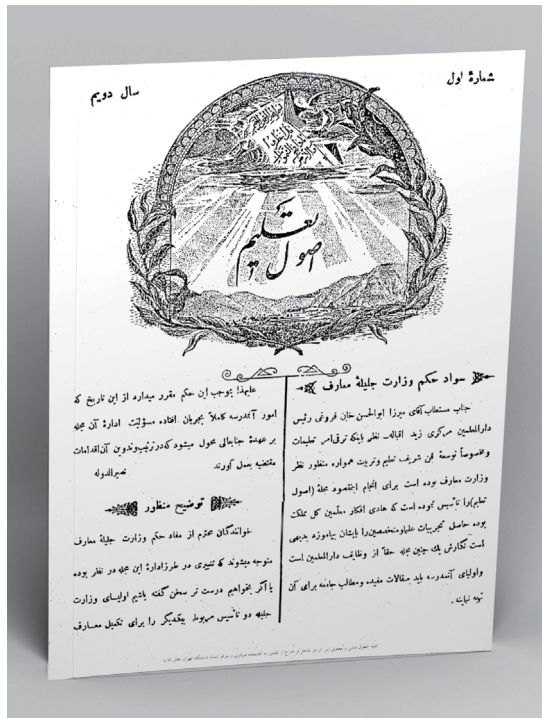 شمارهٔ اول
سال دویم
اصول تعلیم
سواد حکم وزارت جلیلهٔ معارف
جناب مستطاب آقای میرزا ابوالحسن خان فروغی رئیس
دارالمعلمین مرکزی زید اقباله نظر باینکه ترقی امر تعلیمات
و مخصوصاً توسعهٔ فن شریف تعلیم و تربیت همواره منظور نظر
وزارت معارف بوده است برای انجام اینمقصود مجلهٔ (اصول
تعلیم) را تأسیس نموده است که هادی افکار معلمین کل مملکت
بوده حاصل تجربیات علما و متخصصین را بایشان بیاموزد بدیهی
است نگارش یك چنین مجله حقاً از وظایف دارالمعلمین است
و اولیای آنمدرسه باید مقالات مفیده و مطالب جامعه برای آن
تهیه نمایند.
علیهذا بموجب این حکم مقرر میدارد از این تاریخ که
امور آنمدرسه کاملاً بجریان افتاده مسؤلیت ادارهٔ آن مجله
بر عهدهٔ جنابعالی محول میشود که در ترتیب و تدوین آن اقدامات
مقتضیه بعمل آورند
نصیرالدوله
توضیح منظور
خوانندگان محترم از مفاد حکم وزارت جلیلهٔ معارف
متوجه میشوند که تغییری در طرز ادارهٔ این مجله در نظر بوده
یا اگر بخواهیم درست تر سخن گفته باشیم اولیای وزارت
جلیله دو تأسیس مربوط بیکدیگر را برای تکمیل معارف